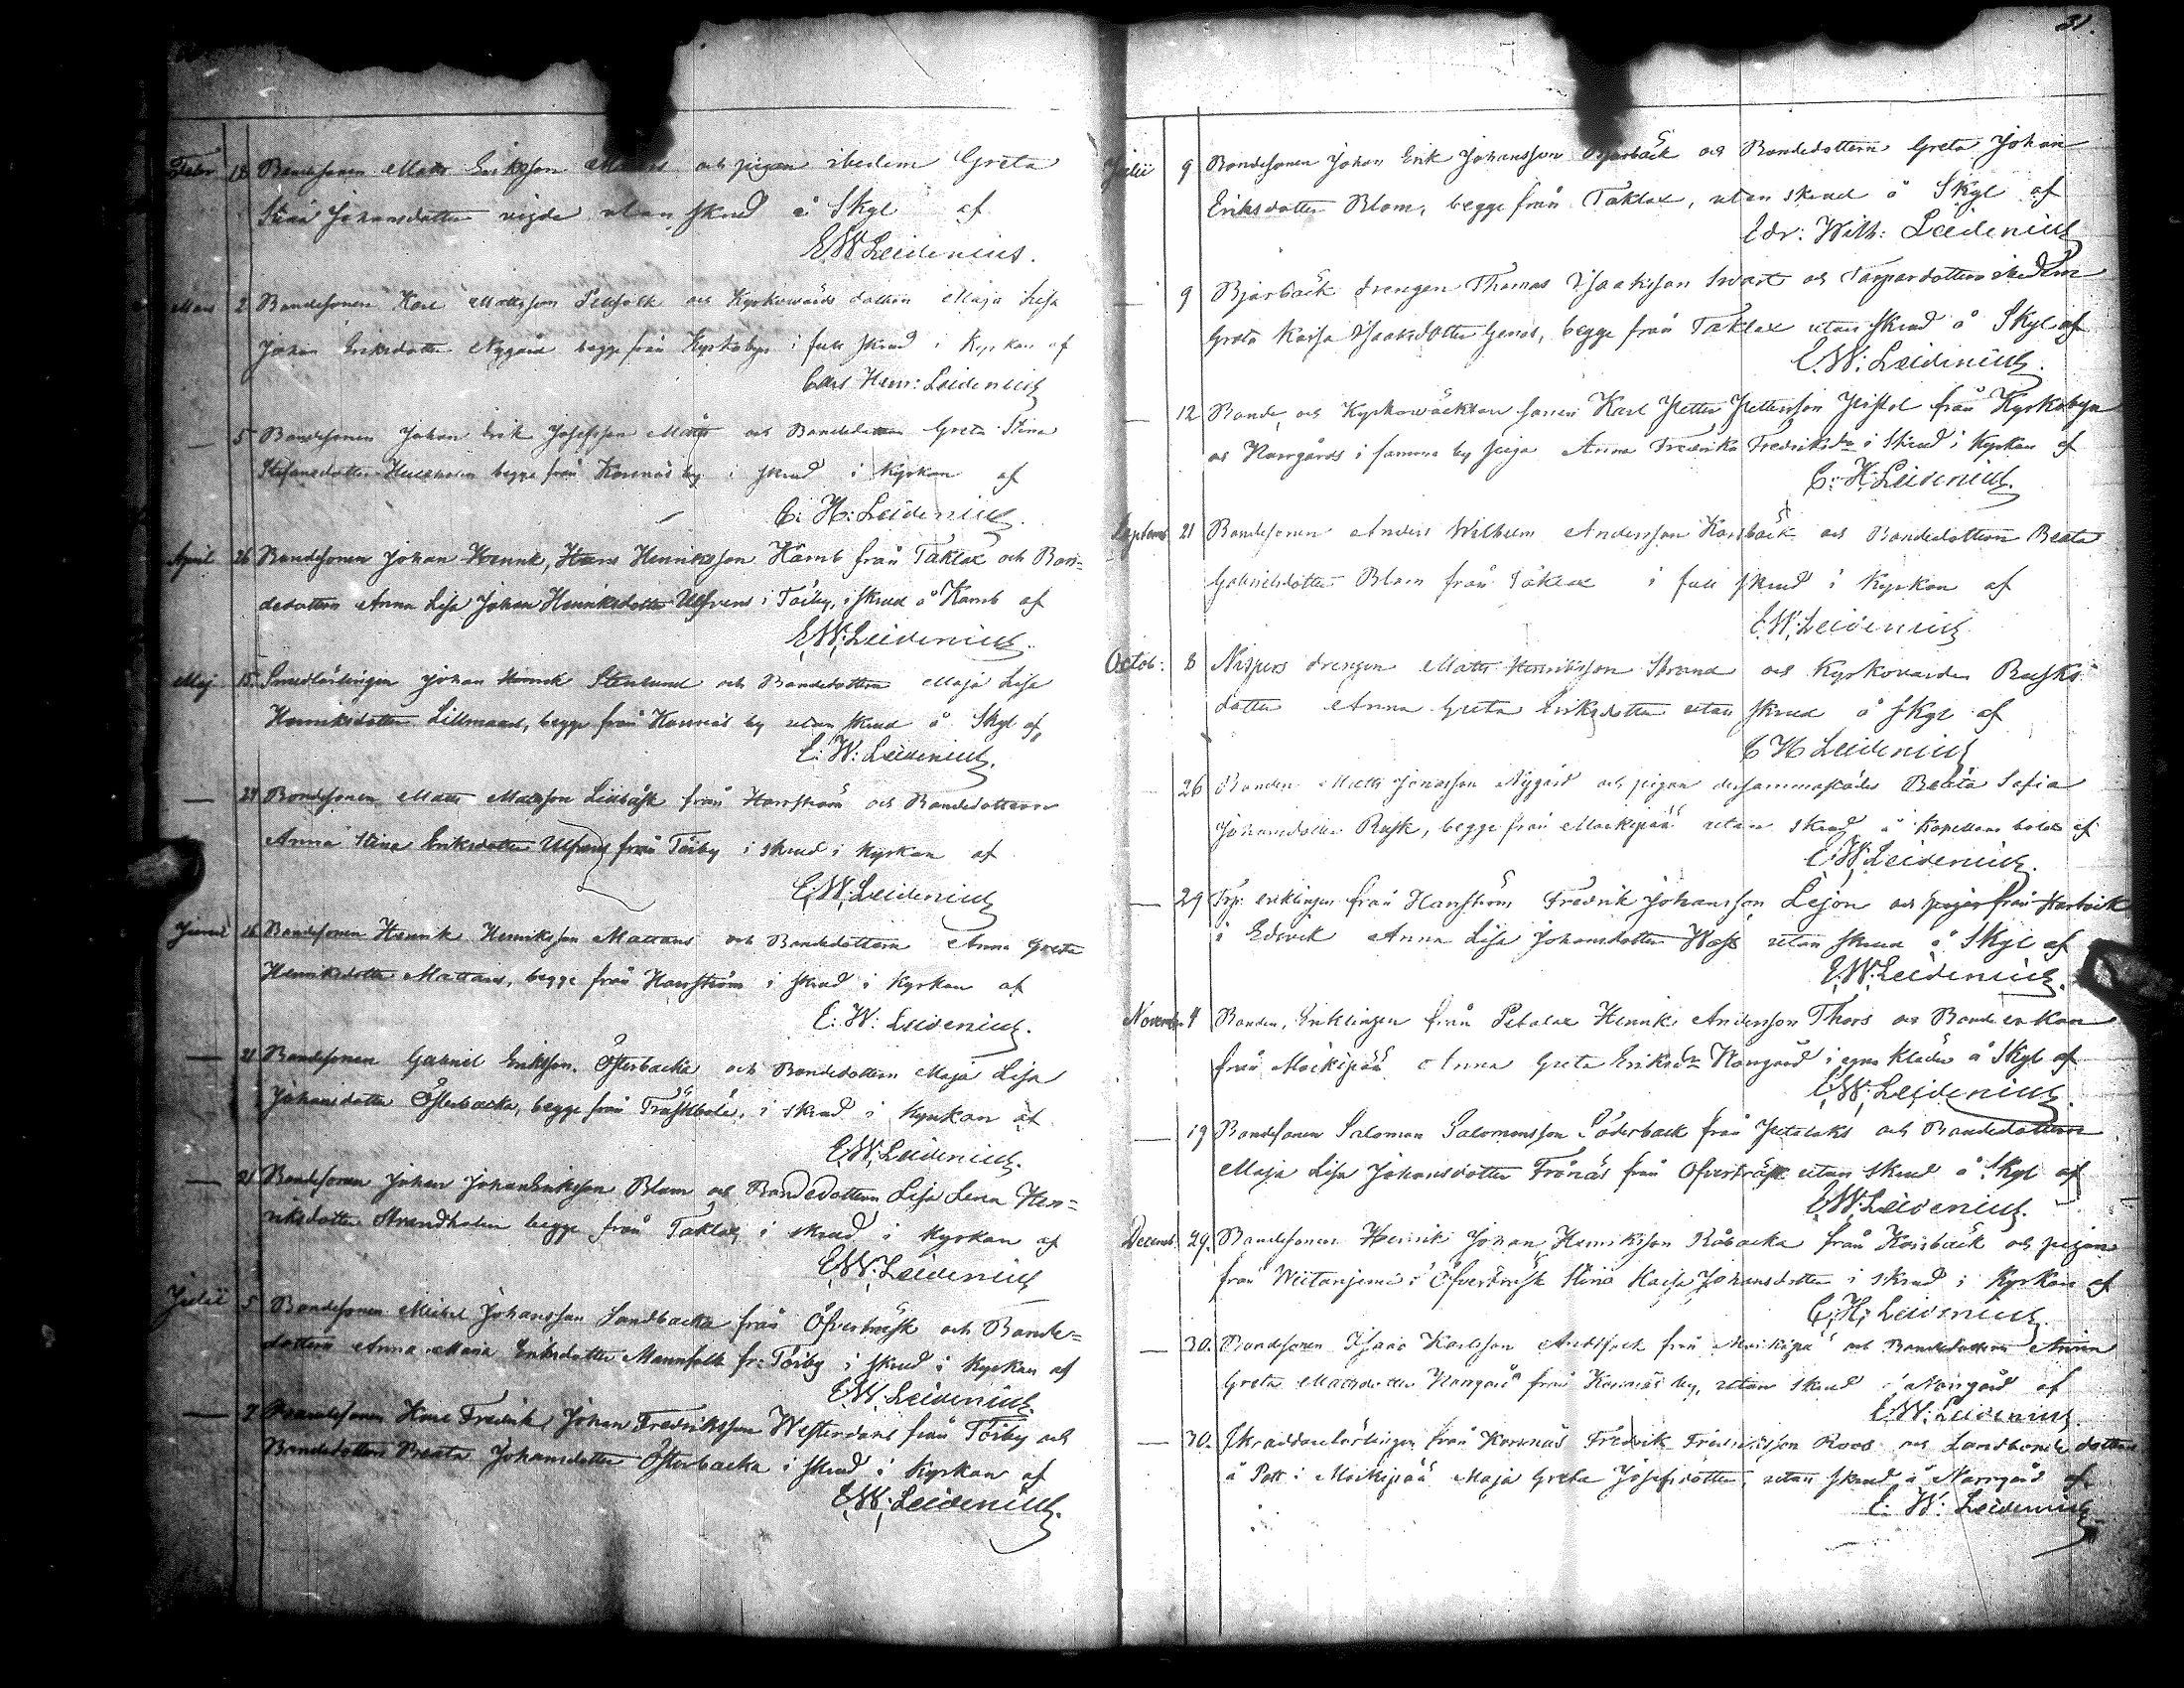 31.
Febr 18 Bondesonen Matts Eriksson och pigan ibidem Greta
Stina Johansdotter vigde utan skrud å Skyl af
E W Leidenius.
Mars 2 Bondesonen Karl Mattsson och Kyrkovärds dottren Maja Lisa
Johan Eriksdotter Nygård begge från Kyrkobyn i full skrud i Kyrkan af
Carl Henr: Leidenius
— 5 Bondesonen Johan Erik Josefsson och Bondedottren Greta Stina
Stefansdotter begge från Korsnäs by i skrud i Kyrkan af
C: H: Leidenius.
April 26 Bondesonen Johan Henrik, Hans Henriksson Kamb från Taklax och Bon=
dedottren Anna Lisa Johan Henriksdotter Ulfvens i Töiby, i skrud å Kamb af
E W: Leidenius.
Maj 15 Smedlärlingen Johan Henrik Stenlund och Bondedottren Maja Lisa
Henriksdotter Lillmans, begge från Korsnäs by utan skrud å Skyl af
E: W: Leidenius.
— 24 Bondesonen Matts Mattsson från Harrström och Bondedottren
Anna Stina Eriksdotter Ulfvens från Töiby i skrud i Kyrkan af
E: W: Leidenius
Junii 16 Bondesonen Henrik Henriksson Mattans och Bondedottren Anna Greta
Henriksdotter Mattans, begge från Harrström i skrud i Kyrkan af
E: W: Leidenius.
— 21 Bondesonen Gabriel Eriksson Österbacka och Bondedottren Maja Lisa
Johansdotter Österbacka, begge från Träskböle, i skrud i Kyrkan af
E: W: Leidenius.
— 21 Bondesonen Johan Johan Eriksson Blom och Bondedottren Lisa Lena Hen=
riksdotter Strandholm begge från Taklax i skrud i Kyrkan af
E W: Leidenius
Julii 5 Bondesonen Mickel Johansson Sandbacka från Öfverträsk och Bonde=
dottren Anna Maria Eriksdotter Mannfolk fr: Töiby i skrud i Kyrkan af
E: W: Leidenius.
— 7 Bondesonen Karl Fredrik Johan Fredriksson Westerdahl från Töiby och
Bondedottren Beata Johansdotter Österbacka i skrud i Kyrkan af
E: W: Leidenius.
Julii 9 Bondesonen Johan Erik Johansson Bjørback och Bondedottren Greta Johan
Eriksdotter Blom, begge från Taklax, utan skrud å Skyl af
Edv: Wilh: Leidenius
— 9 Bjurback drengen Thomas Isaksson Svart och dottren ibidem
Greta Kaisa Isaksdotter begge från Taklax utan skrud å Skyl af
E. W: Leidenius.
— 12 Bonde och Kyrkowäcktare sonen Karl Petter Pettersson Pistol från Kyrkobyn
och Norrgårds i samma by piga Anna Fredrika Fredriksdr i Skrud i Kyrkan af
C: H: Leidenius.
Septemb 21 Bondesonen Anders Wilhelm Andersson Korsbäck och Bondedottren Beata
Gabrielsdotter Blom från Taklax i full skrud i Kyrkan af
E. W: Leidenius
Octob: 8 drengen Matts Henriksson Strand och Kyrkovärden Rusks
dotter Anna Greta Eriksdotter utan skrud å Skyl af
C H Leidenius
— 26 Bonden Matts Jonasson Nygård och pigan dersammastädes Beata Sofia
Johansdotter Rusk, begge från Moikipää utan skrud å Kapellans bol af
E: W: Leidenius.
— 29 Trp: enklingen från Harrström Fredrik Johansson Lejon och pigan från Hartvik
i Edsvik Anna Lisa Johansdotter Hass utan skrud å Skyl af
E: W: Leidenius.
November 4 Bonden, Enklingen från Petalax Henrik Andersson Thors och Bonde enkan
från Moikipää Anna Greta Eriksdr Norrgård i egna kläder å Skyl af
E: W: Leidenius.
— 19 Bondesonen Salomon Salomonsson Söderback från Petalaks och Bondedottren
Maja Lisa Johansdotter Frönäs från Öfverträsk utan skrud å Skyl af
E: W: Leidenius.
Decemb 29. Bondesonen Henrik Johan Henriksson Råbacka från Korsbäck och pigan
från i Öfverträsk Stina Kaisa Johansdotter i skrud i Kyrkan af
C: H: Leidenius.
— 30. Bondesonen Isaac Karlsson från Moikipää och Bondedottren Anna
Greta Mattsdotter Norrgård från Korsnäs by, utan skrud å Norrgård af
E. W: Leidenius.
— 30. Skräddarelärlingen från Korsnäs Fredrik Fredriksson Roos och Landbonde dottren
å Pott i Moikipää Maja Greta Josefsdotter, utan skrud å Norrgård af
E. W: Leidenius